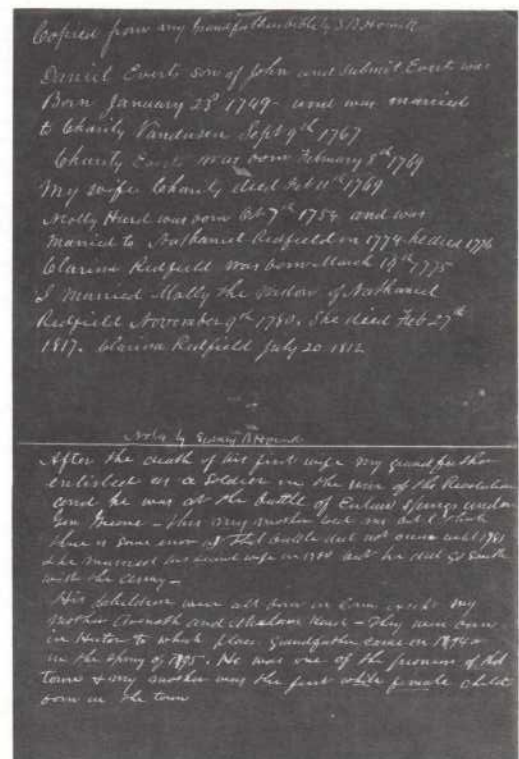 Copied from my Grandfathers bible by S.B. Howitt
Daniel Everts son of John and Submit Everts was
Born January 23d 1749 - and was married
to Charity Vandusen Sept 9th 1767
Charity Everts was born February 8th 1769
My wife Charity died Feb 11th 1769
Molly Hurd was born Oct 7th 1754 and was
married to Nathaniel Redfield in 1774 he died 1776
Clarissa Redfield was born March 14th 1775
I married Molly the widow of Nathaniel
Redfield November 9th 1780. She died Feb 27th
1817. Clarissa Redfield July 20 1812
Notes by
After the death of his first wife my grandfather
enlisted as a soldier in the war of the Revolution
and he was at the battle of Eutaw Springs under
Gen Greene - This my mother told me but I think
there is some error as that battle did not occur until 1781
& he married his second wife in 1780 but he did go South
with the army -
His children were all born in except my
mother and - They were born
in to which place grandfather came in 1794 or
in the spring of 1795. He was one of the pioneers of that
town & my mother was the first white female child
born in the town